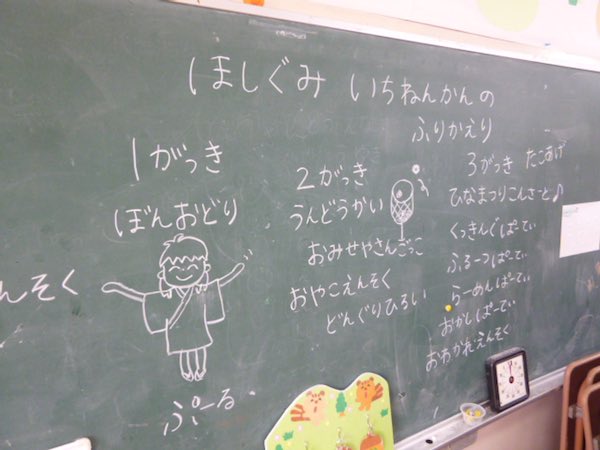 ほしぐみ いちねんかんの
ふりかえり
1がっき
ぼんおどり
んそく
ぷーる
2がっき
うんどうかい
おみせやさんごっこ
おやこえんそく
どんぐりひろい
3がっき たこあげ
ひなまつりこんさーと♪
くっきんぐぱーてぃ
ふるーつぱーてぃ
らーめんぱーてぃ
おかしぱーてぃ
おわかれえんそく